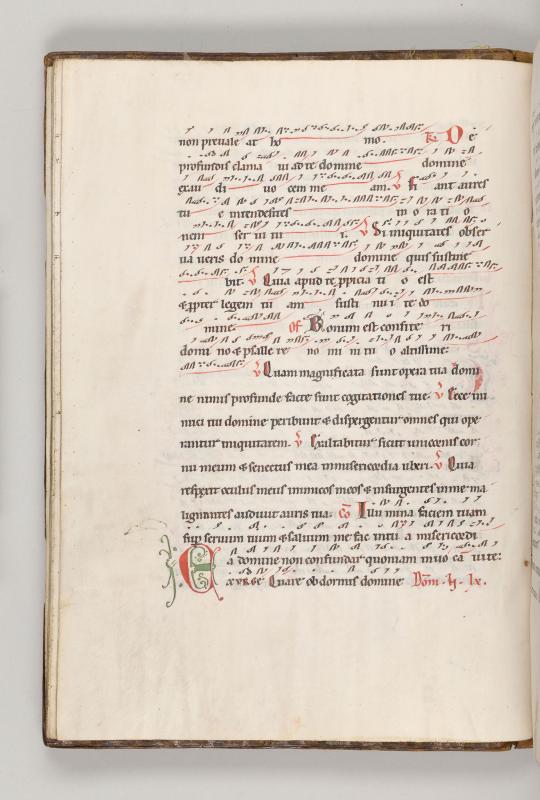 non prevale at ho mo. T. De
profundis clama vi ad te domine domine
exau di vo cem me am. V Fi ant aures
tu e intendentes in o ra ti o
nem ser vi tu i. V Si iniquitates obser
va veris do mine domine quis sustine
bit. V Quia apud te ppicia ti o est
& ppter legem tu am susti nu i te do
mine. Of Bonum est confite ri
domi no & psalle re no mi ni tu o altissime.
V Quam magnificata sunt opera tua domi
ne nimis profunde facte sunt cogitationes tue. V Ecce ini
mici tui domine peribunt & dispergentur omnes qui ope
rantur iniquitatem. V Exaltabitur sicut unicornis cor
nu meum & senectus mea in misericordia uberi. V Quia
respexit oculus meus inimicos meos & insurgentes in me ma
lignantes audivit auris tua. Co Illu mina faciem tuam
sup servum tuum & salvum me fac in tu a misericordi
a domine non confundar quoniam invo cavi te.
EXURGE Quare obdormis domine Dom. in lx.